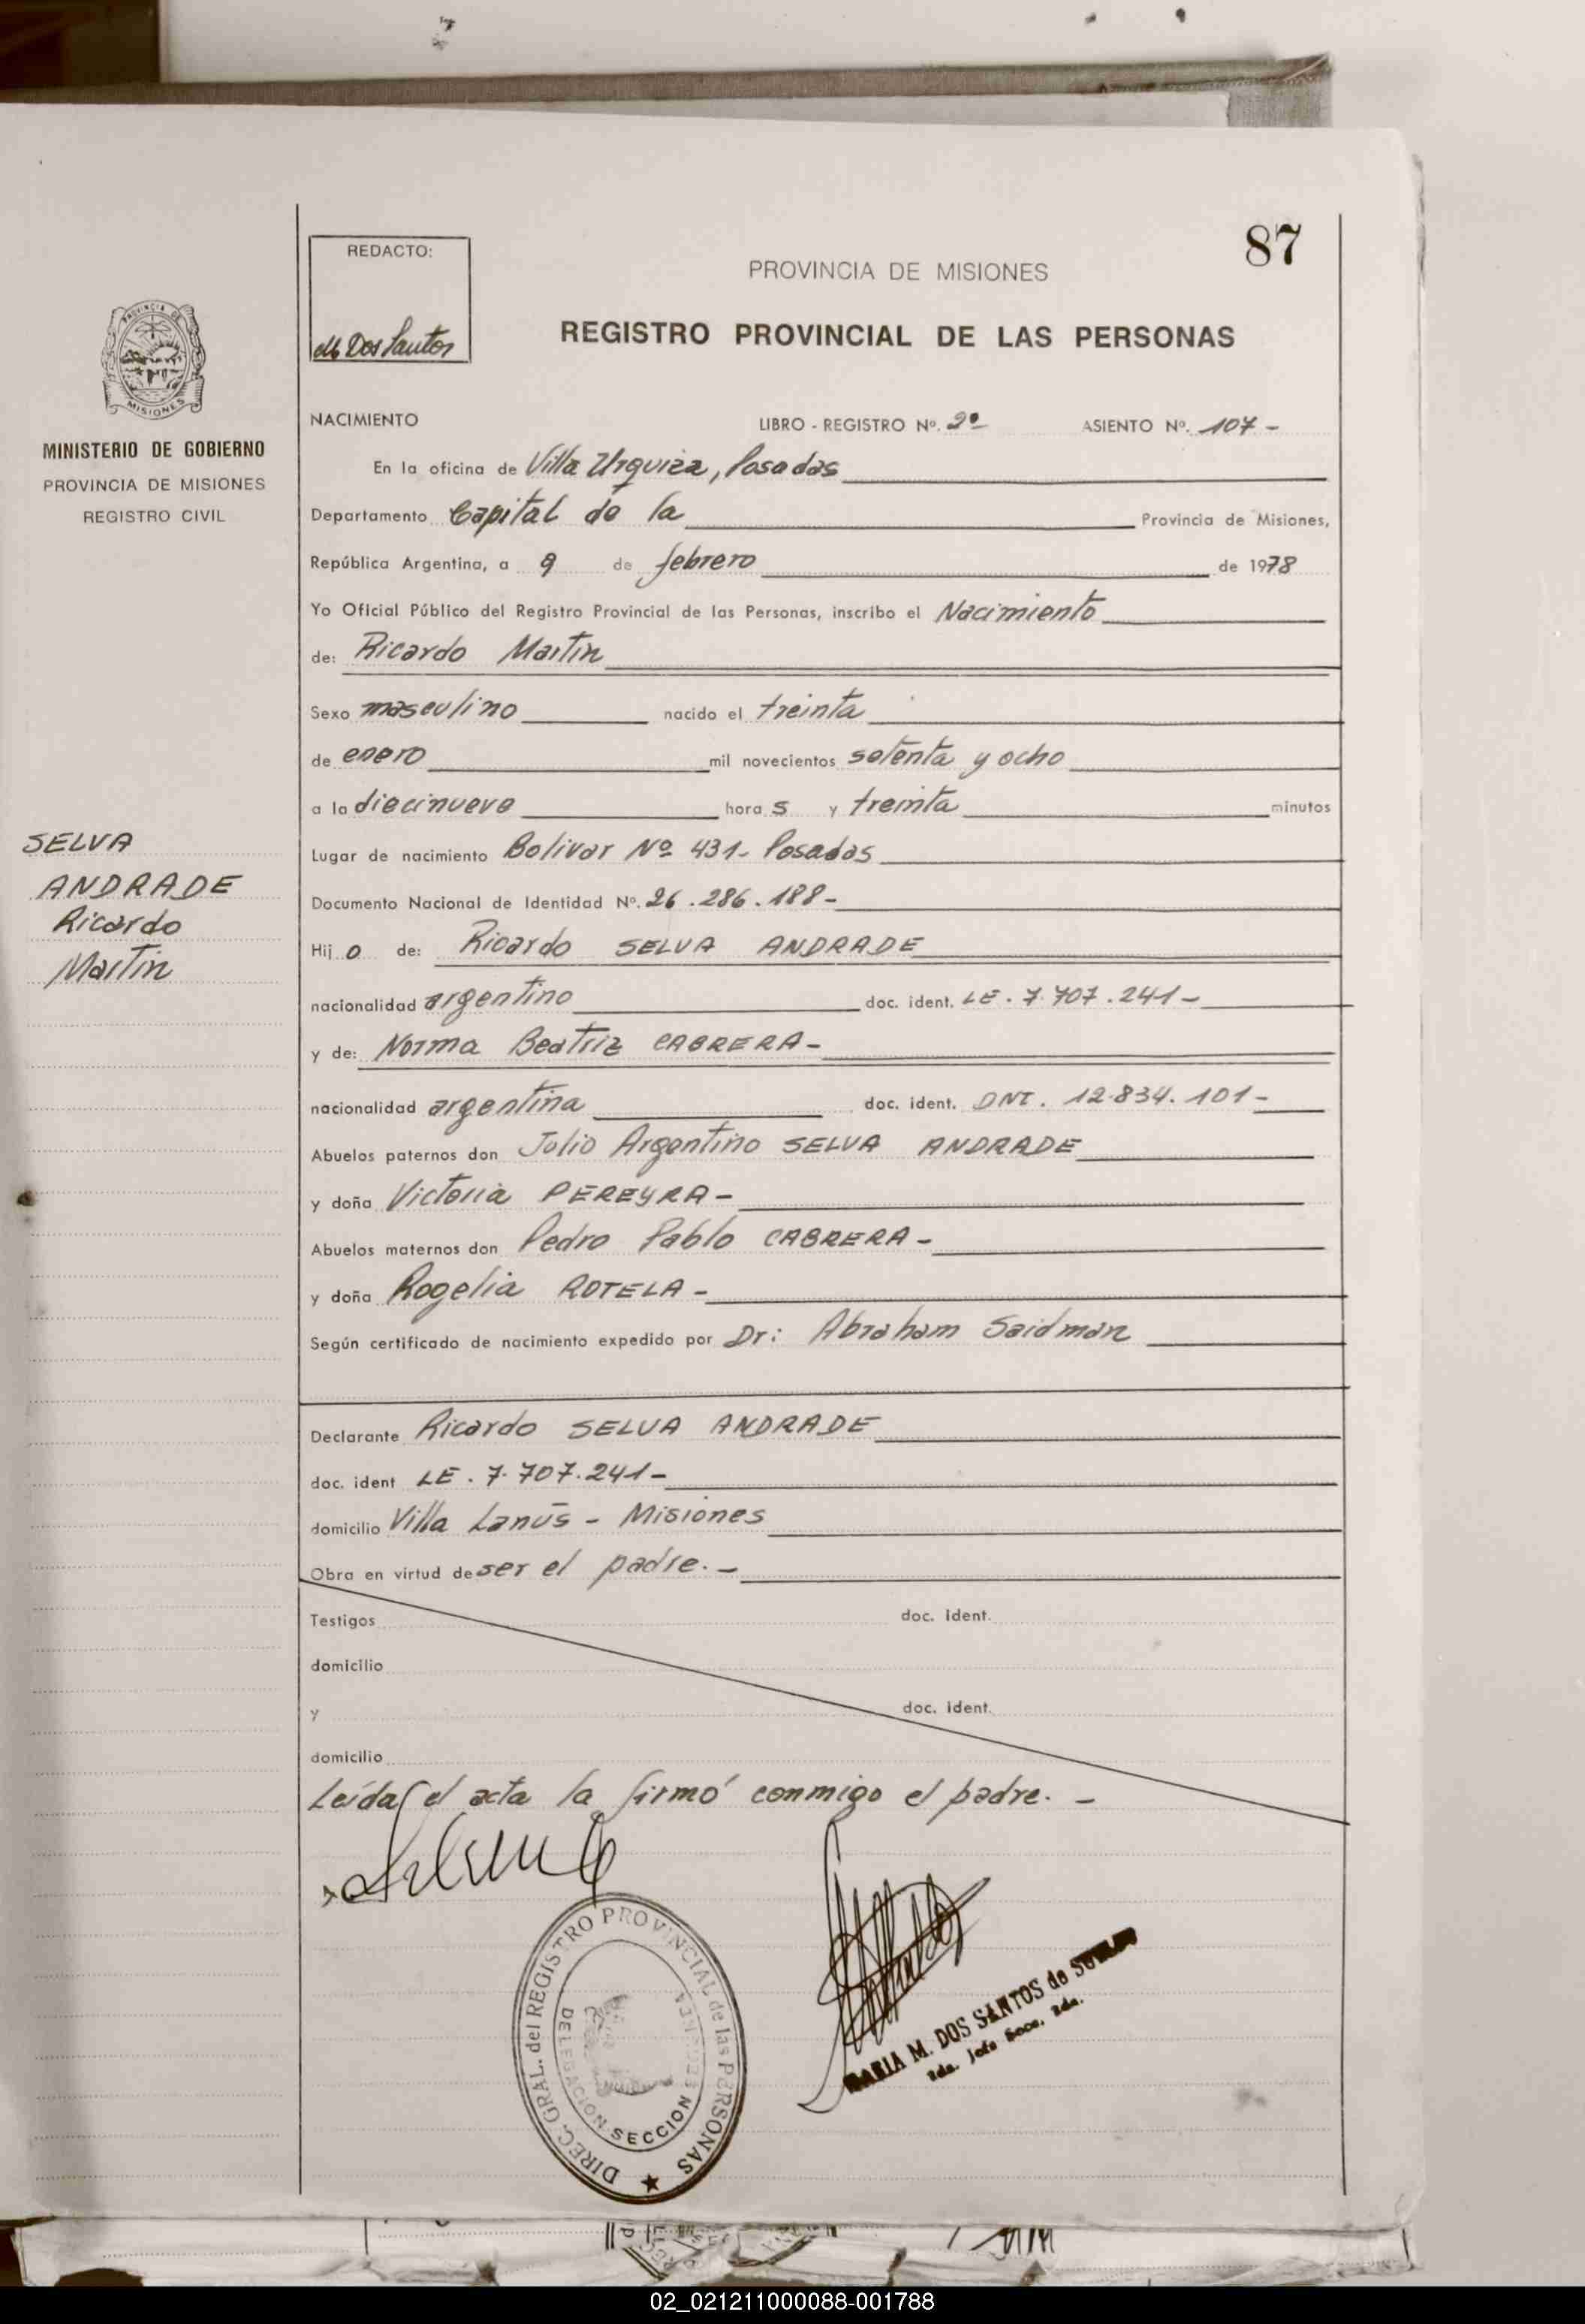 87
REDACTO:
M Dos Santos
PROVINCIA DE MISIONES
REGISTRO PROVINCIAL DE LAS PERSONAS
PROVINCIA DE
MISIONES
MINISTERIO DE GOBIERNO
PROVINCIA DE MISIONES
REGISTRO CIVIL
SELVA
ANDRADE
Ricardo
Martin
NACIMIENTO LIBRO - REGISTRO Nº. 2º ASIENTO Nº. 107 -
En la oficina de Villa Urquiza, Posadas
Departamento Capital de la Provincia de Misiones,
República Argentina, a 9 de febrero de 1978
Yo Oficial Público del Registro Provincial de las Personas, inscribo el Nacimiento
de: Ricardo Martin
Sexo masculino nacido el treinta
de enero mil novecientos setenta y ocho
a la diecinueve hora s y treinta minutos
Lugar de nacimiento Bolivar Nº 431- Posadas
Documento Nacional de Identidad Nº. 26.286.188-
Hij o de: Ricardo SELVA ANDRADE
nacionalidad argentino doc. ident. LE. 7.707.241-
y de: Norma Beatriz CABRERA-
nacionalidad argentina doc. ident. DNI. 12.834.101-
Abuelos paternos don Julio Argentino SELVA ANDRADE
y doña Victoria PEREYRA-
Abuelos maternos don Pedro Pablo CABRERA-
y doña Rogelia ROTELA-
Según certificado de nacimiento expedido por Dr: Abraham Saidman
Declarante Ricardo SELVA ANDRADE
doc. ident LE. 7.707.241-
domicilio Villa Lanús - Misiones
Obra en virtud de ser el padre.-
Testigos doc. ident.
domicilio
y doc. ident.
domicilio
Leída el acta la firmó conmigo el padre. -
DIREC. GRAL. del REGISTRO PROVINCIAL de las PERSONAS
DELEGACION SECCION
MARIA M. DOS SANTOS de
2da. Jefe Secc. 2da.
02_021211000088-001788